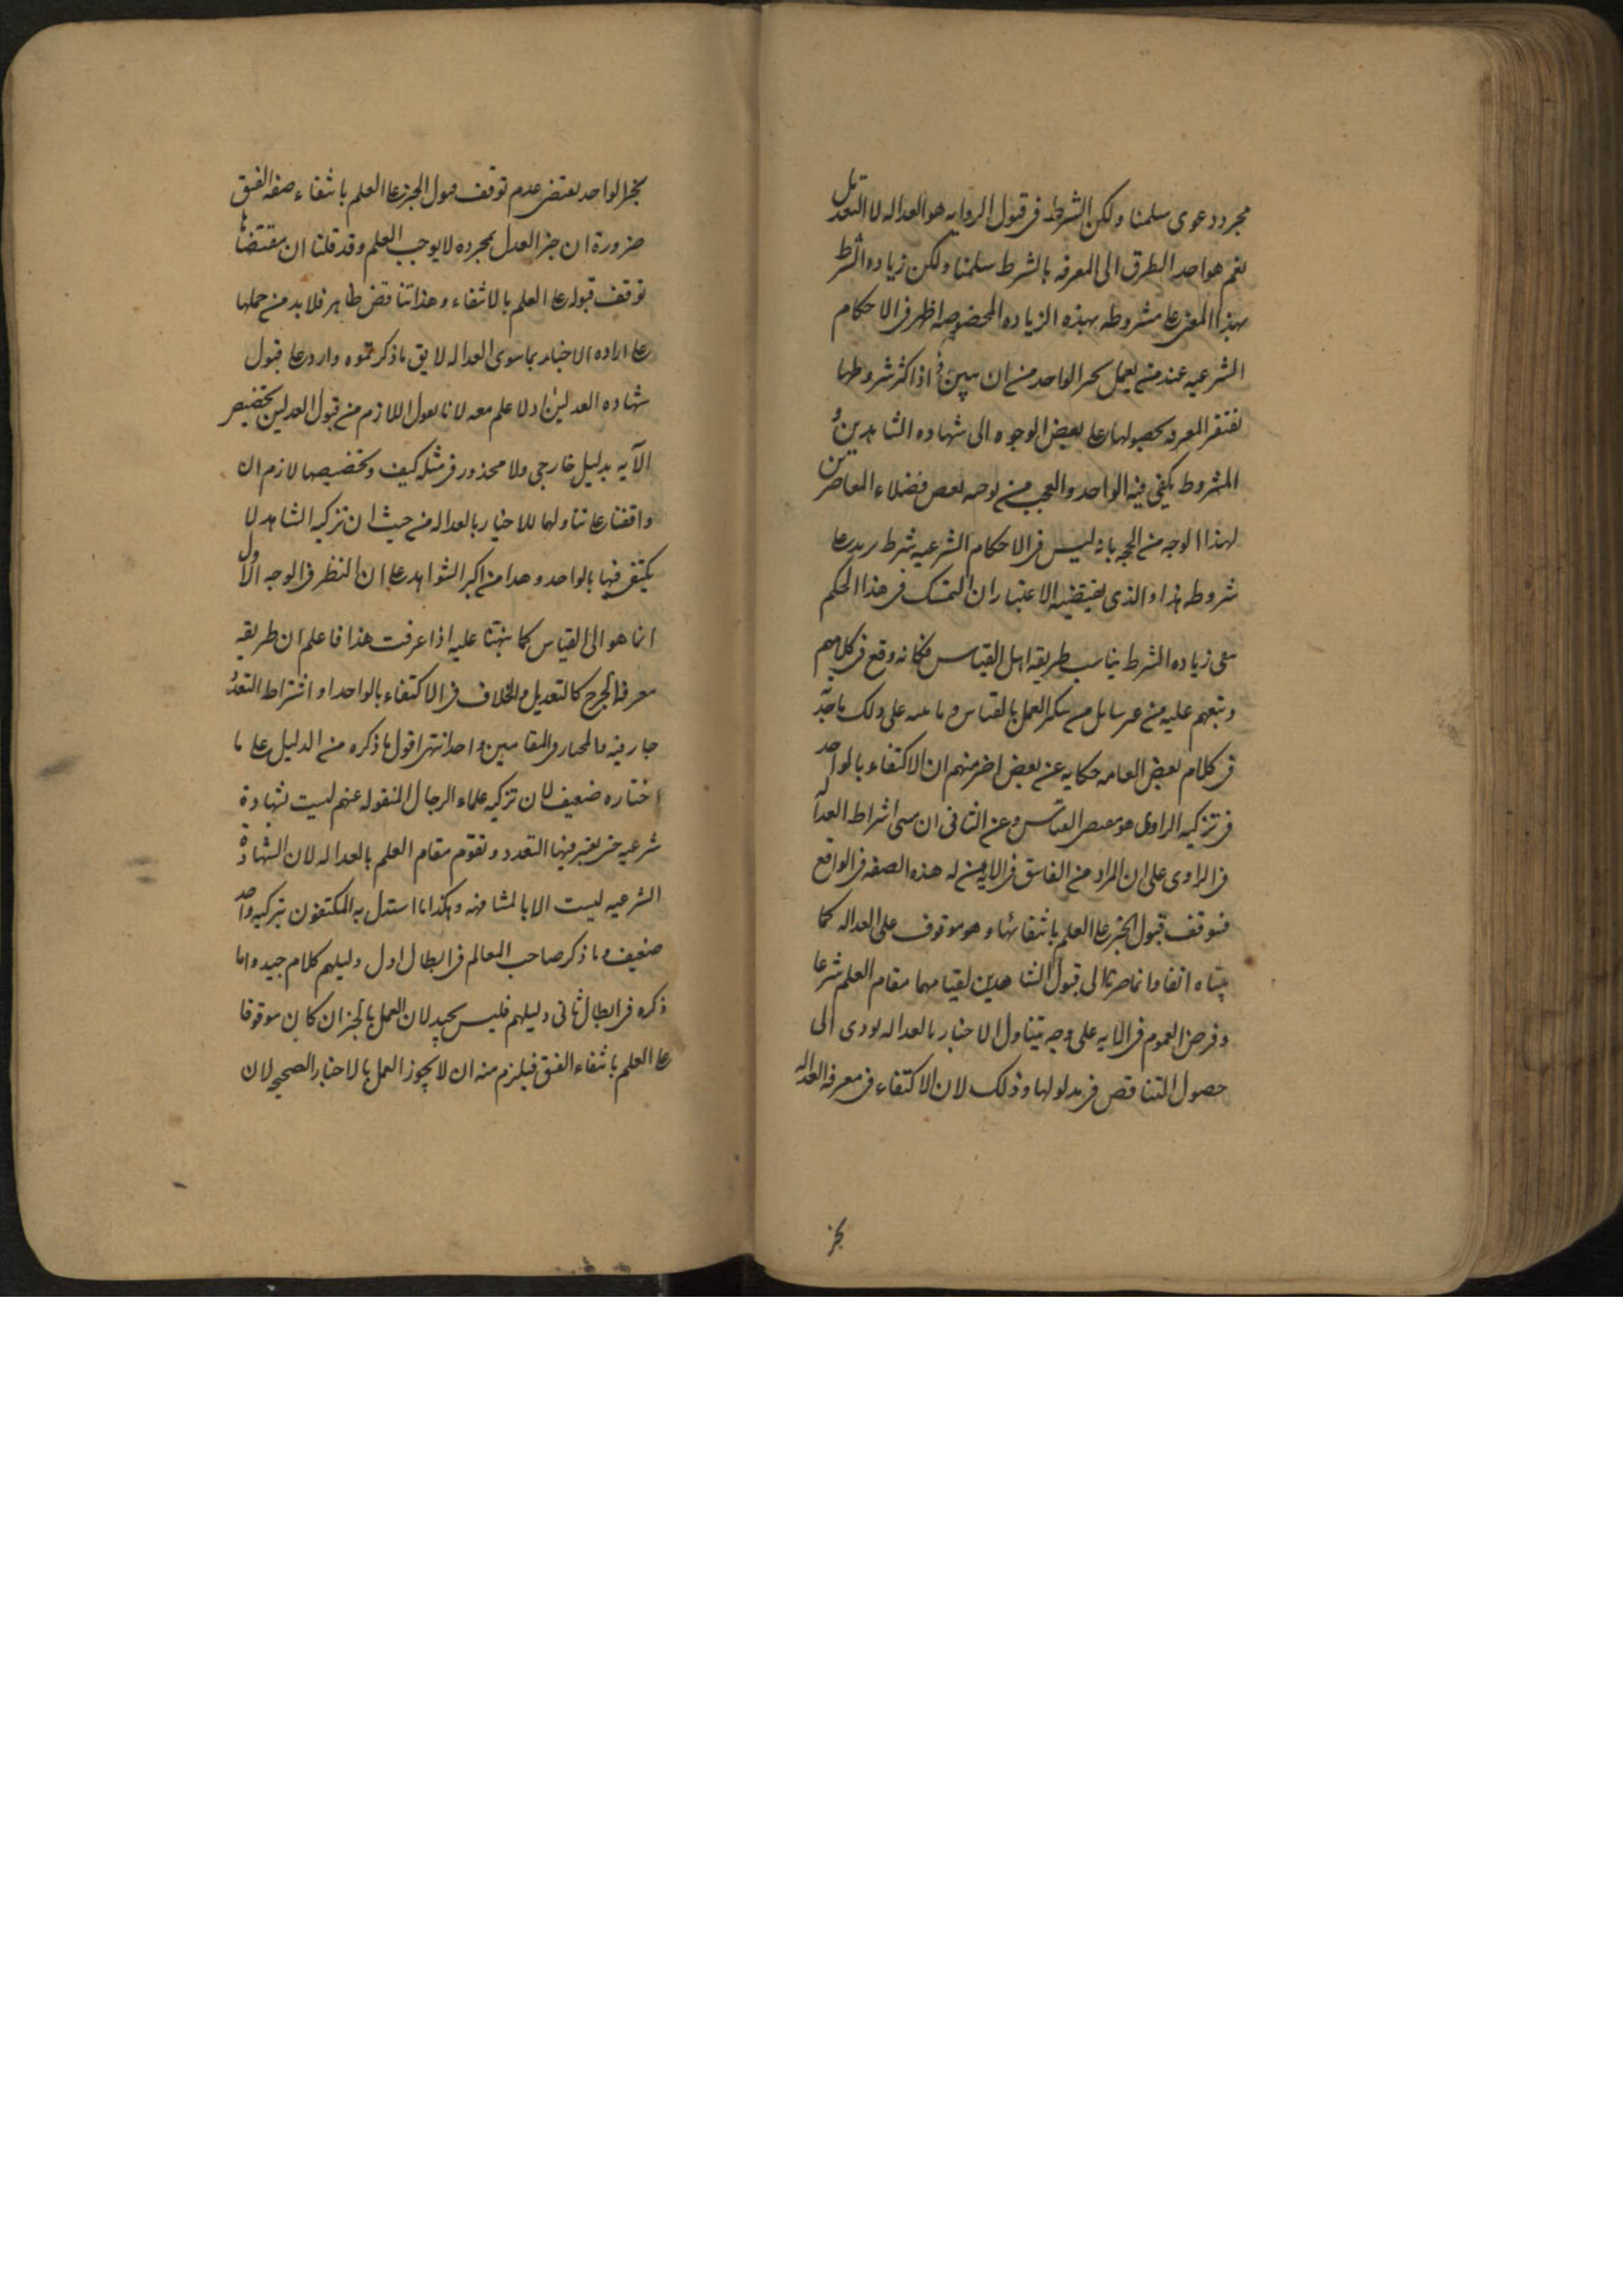 مجرد دعوى سلمنا ولكن الشرط فى قبول الروايه هو العداله لا التعديل
نعم هو احد الطرق الى المعرفه بالشرط سلمنا ولكن زياده الشرط
بهذا المعنى على مشروطه بهذه الزياده المخصوصه اظهر فى الاحكام
الشرعيه عند من يعمل بخبر الواحد من ان يبين اذ اكثر شروطها
تفتقر المعرفه بحصولها على بعض الوجوه الى شهاده الشاهدين و
المشروط يكفى فيه الواحد والعجب من توجيه بعض فضلاء المعاصرين
لهذا الوجه من الحجه بانه ليس فى الاحكام الشرعيه شرط يزيد على
مشروطه هذا والذى يقتضيه الاعتبار ان التمسك فى هذا الحكم
بنفى زياده الشرط يناسب طريقه اهل القياس فكانه وقع فى كلامهم
وتبعهم عليه من غير تامل من ينكر العمل بالقياس و مما ينبه على ذلك ما تجد
فى كلام بعض العامه حكايه عن بعض اخر منهم ان الاكتفاء بالواحد
فى تزكيه الراوى هو مقتضى القياس وعن الثانى ان مبنى اشتراط العداله
فى الراوى على ان المراد من الفاسق فى الايه من له هذه الصفه فى الواقع
فتوقف قبول الخبر على العلم بانتفائها و هو موقوف على العداله كما
بيناه انفا وانما صرنا الى قبول الشاهدين لقيامهما مقام العلم شرعا
وفرض العموم فى الايه على وجه يتناول الاخبار بالعداله يودى الى
حصول التناقض فى مدلولها وذلك لان الاكتفاء فى معرفه العداله
بخبر
بخبر الواحد يقتضى عدم توقف قبول الخبر على العلم بانتفاء صفه الفسق
ضرورة ان خبر العدل بمجرده لا يوجب العلم وقد قلنا ان مقتضاها
توقف قبوله على العلم بالانتفاء وهذا تناقض ظاهر فلا بد من حملها
على اراده الاخبار بما سوى العداله لا يق ما ذكرتموه وارد على قبول
شهاده العدلين اذ لا علم معه لانا نقول اللازم من قبول العدلين تخصيص
الآيه بدليل خارجى ولا محذور فى مثله كيف وتخصيصها لازم ان
وافقنا على تناولها للاخبار بالعداله من حيث ان تزكيه الشاهد لا
يكتفى فيها بالواحد وهذا من اكبر الشواهد على ان النظر فى الوجه الاول
انما هو الى القياس كما نبهنا عليه اذا عرفت هذا فاعلم ان طريقه
معرفه الجرح كالتعديل والخلاف فى الاكتفاء بالواحد او اشتراط التعدد
جار فيه والمختار فى المقامين واحد انتهى اقول ما ذكره من الدليل على ما
اختاره ضعيف لان تزكيه علماء الرجال المنقوله عنهم ليست شهادة
شرعيه حتى يعتبر فيها التعدد وتقوم مقام العلم بالعداله لان الشهادة
الشرعيه ليست الا بالمشافهه وهكذا ما استدل به المكتفون بتزكيه واحد
ضعيف وما ذكر صاحب المعالم فى ابطال اول دليلهم كلام جيد واما
ذكره فى ابطال ثانى دليلهم فليس بجيد لان العمل بالخبر ان كان موقوفا
على العلم بانتفاء الفسق فيلزم منه ان لا يجوز العمل بالاخبار الصحيحه لان